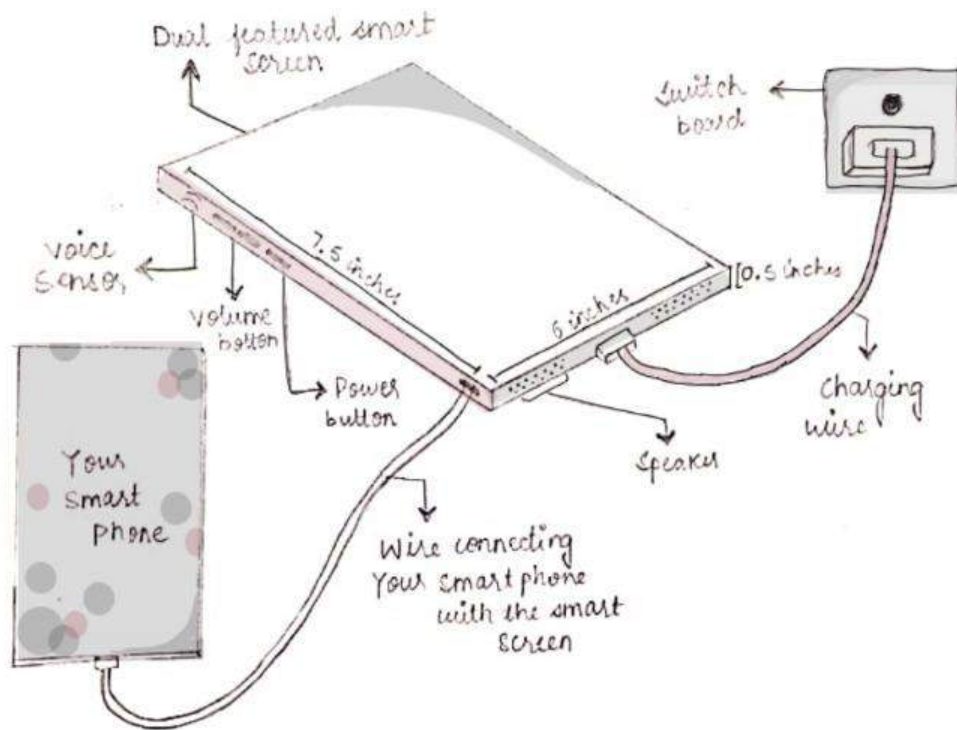 Dual featured smart
screen
Switch
board
7.5 inches
6 inches
0.5 inches
Voice
Sensor
Volume
button
Power
button
Charging
wire
Speaker
Your
smart
phone
Wire connecting
Your smart phone
with the smart
screen